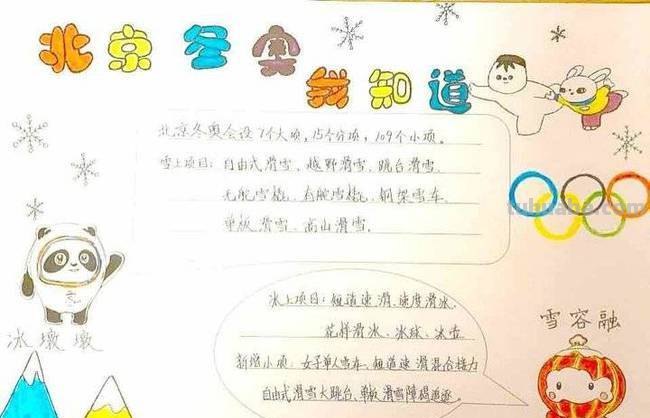 北京冬奥
我知道
北京冬奥会设7个大项，15个分项，109个小项。
雪上项目：自由式滑雪、越野滑雪、跳台滑雪、
无舵雪橇、有舵雪橇、钢架雪车、
单板滑雪、高山滑雪。
tuhuabe.com
冰上项目：短道速滑、速度滑冰、
花样滑冰、冰球、冰壶
新增小项：女子单人雪车、短道速滑混合接力
自由式滑雪大跳台、单板滑雪障碍追逐。
冰墩墩
雪容融